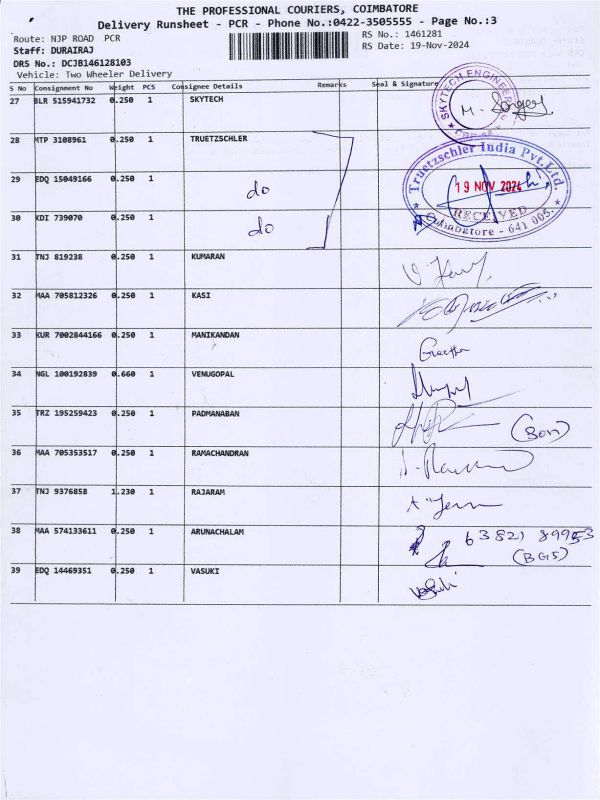 THE PROFESSIONAL COURIERS, COIMBATORE
Delivery Runsheet - PCR - Phone No.:0422-3505555 - Page No.:3
Route: NJP ROAD PCR
RS No.: 1461281
Staff: DURAIRAJ
RS Date: 19-Nov-2024
DRS No.: DCJB146128103
Vehicle: Two Wheeler Delivery
S No Consignment No Weight PCS Consignee Details Remarks Seal & Signature
27 BLR 515941732 0.250 1 SKYTECH
SKYTECH ENGINEERS
28 MTP 3108961 0.250 1 TRUETZSCHLER
Truetzschler India Pvt.Ltd.
29 EDQ 15049166 0.250 1 do
19 NOV 2024
RECEIVED
30 KDI 739070 0.250 1 do
Coimbatore - 641 005.
31 TNJ 819238 0.250 1 KUMARAN
32 MAA 705812326 0.250 1 KASI
33 KUR 7002844166 0.250 1 MANIKANDAN
Geetha
34 NGL 100192839 0.660 1 VENUGOPAL
35 TRZ 195259423 0.250 1 PADMANABAN
(Son)
36 MAA 705353517 0.250 1 RAMACHANDRAN
37 TNJ 9376858 1.230 1 RAJARAM
38 MAA 574133611 0.250 1 ARUNACHALAM
(BGS)
39 EDQ 14469351 0.250 1 VASUKI
Vasuki